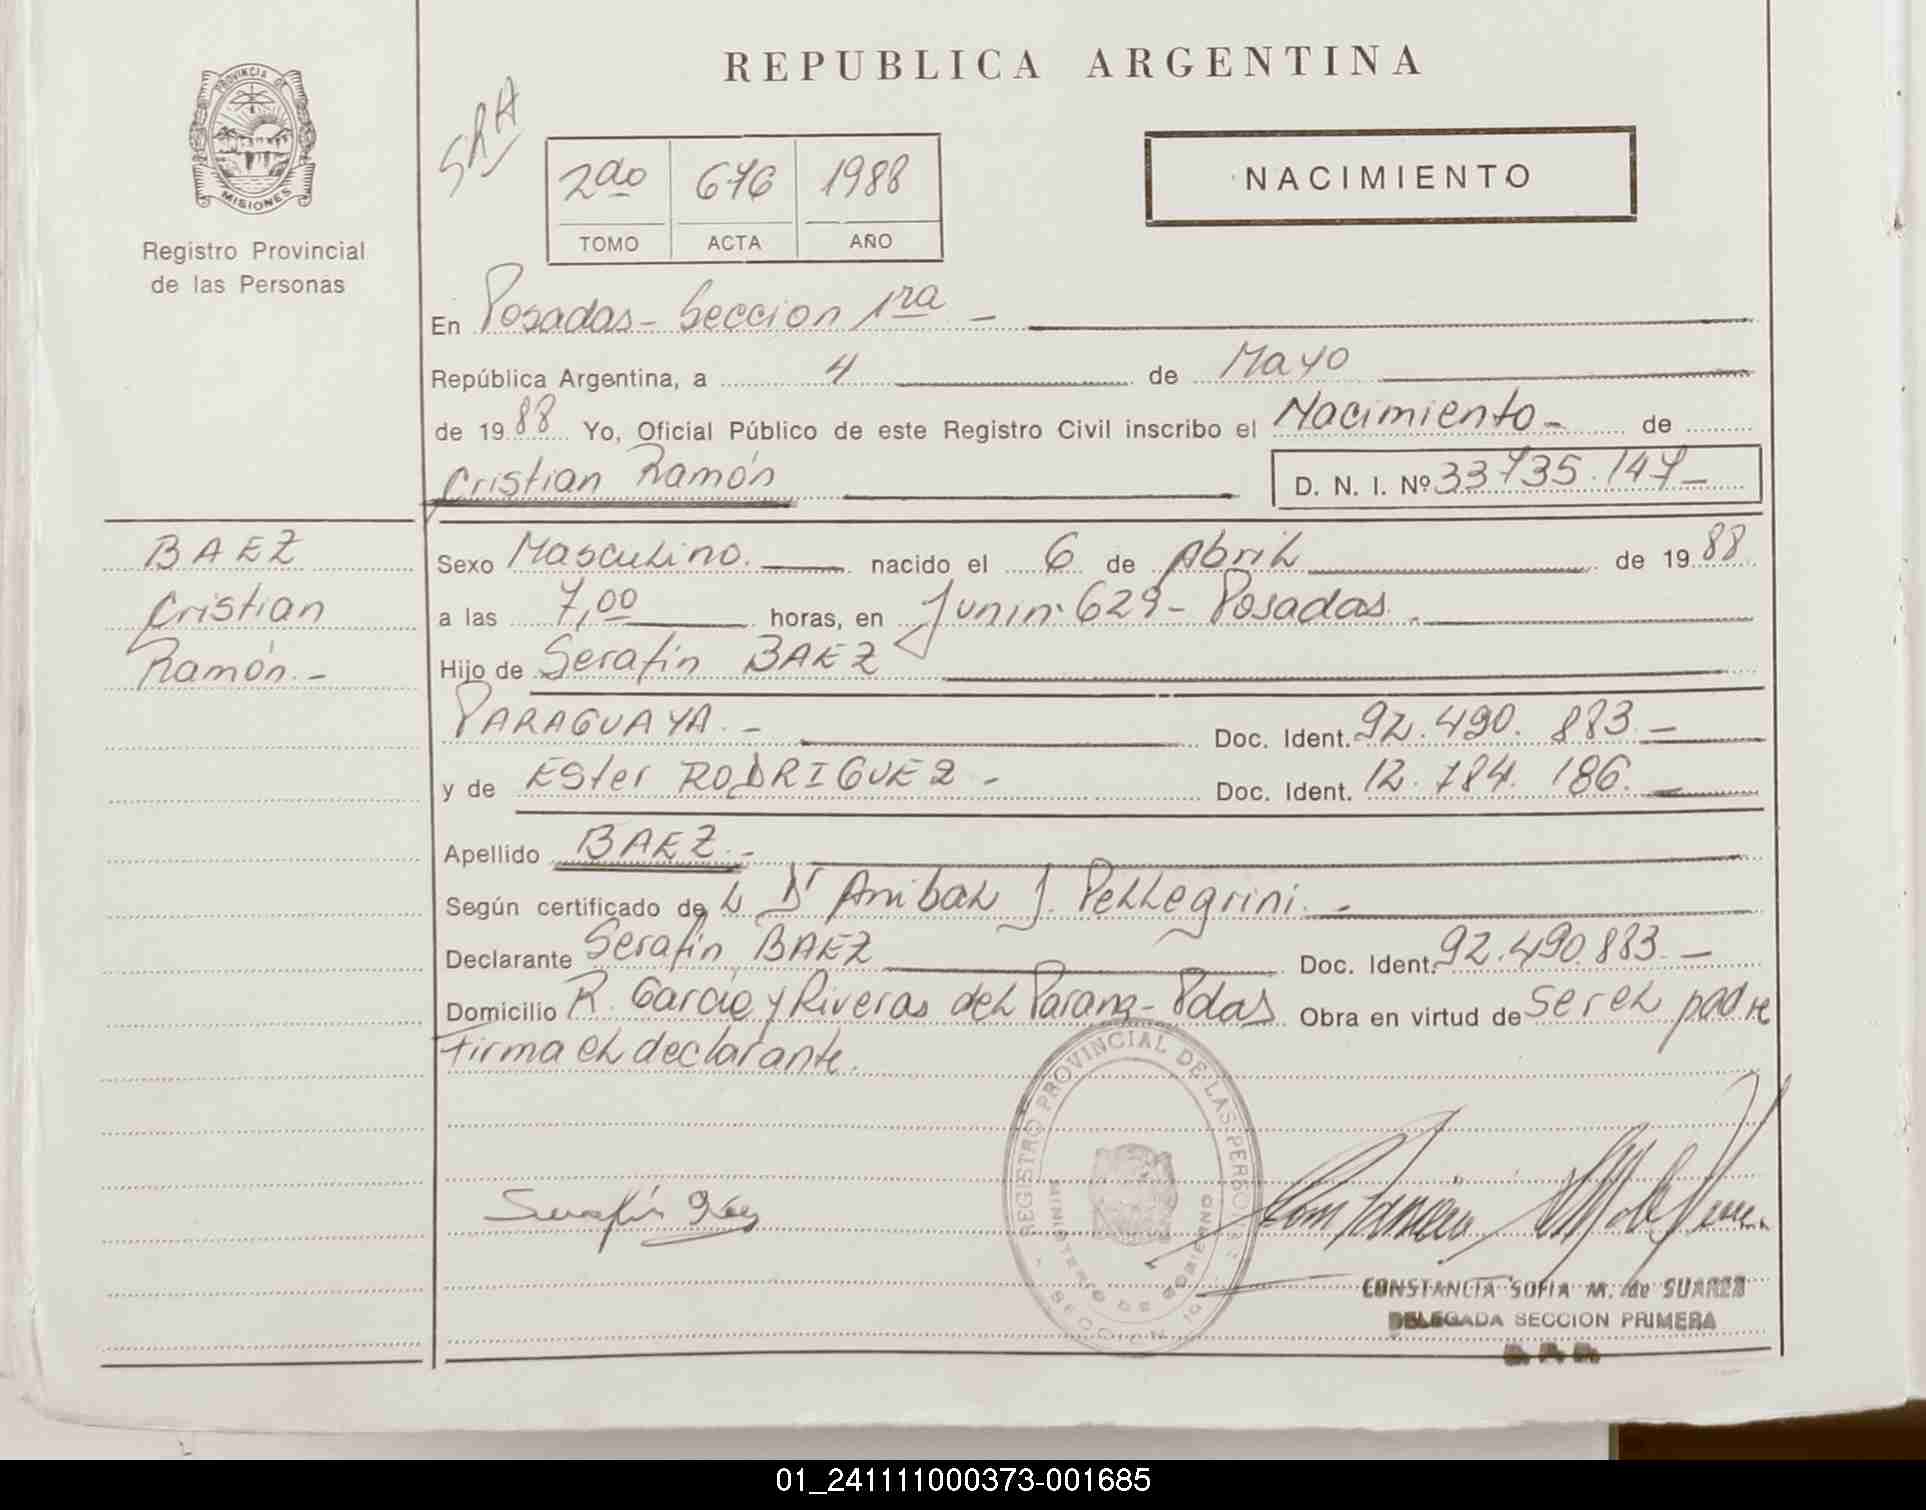 REPUBLICA ARGENTINA
PROVINCIA DE
MISIONES
Registro Provincial
de las Personas
SRA
2do 676 1988
TOMO ACTA AÑO
NACIMIENTO
En Posadas - Seccion 1ra -
República Argentina, a 4 de Mayo
de 1988 Yo, Oficial Público de este Registro Civil inscribo el Nacimiento - de
Cristian Ramón D. N. I. Nº 33.735.147 -
BAEZ
Cristian
Ramón. -
Sexo Masculino. nacido el 6 de Abril de 1988
a las 7,00 horas, en Junin 629 - Posadas.
Hijo de Serafin BAEZ
PARAGUAYA. - Doc. Ident. 92.490.883 -
y de Ester RODRIGUEZ - Doc. Ident. 12.784.186.
Apellido BAEZ. -
Según certificado de L Dr Anibal J. Pellegrini. -
Declarante Serafin BAEZ Doc. Ident. 92.490.883. -
Domicilio R. Garcia y Riveras del Parana - Pdas Obra en virtud de ser el padre
Firma el declarante.
REGISTRO PROVINCIAL DE LAS PERSONAS
MINISTERIO DE GOBIERNO
Serafin Baez
CONSTANCIA SOFIA M. de SUAREZ
DELEGADA SECCION PRIMERA
01_241111000373-001685